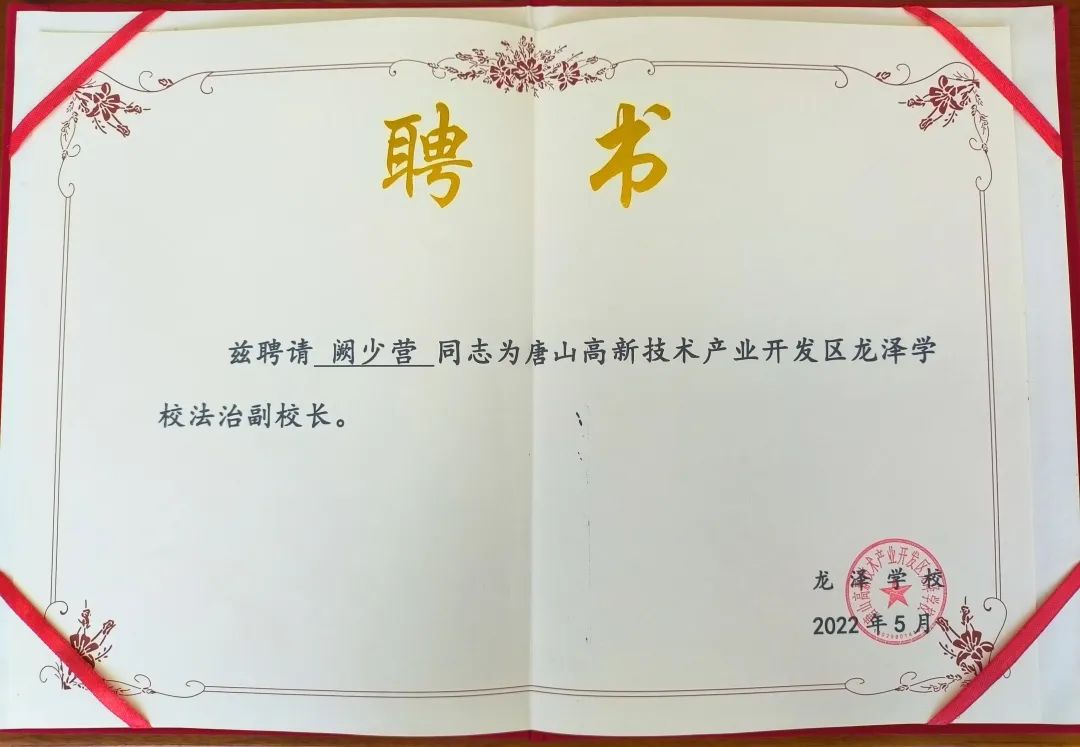 聘书
兹聘请 阙少营 同志为唐山高新技术产业开发区龙泽学
校法治副校长。
龙泽学校
2022年5月
唐山高新技术产业开发区龙泽学校